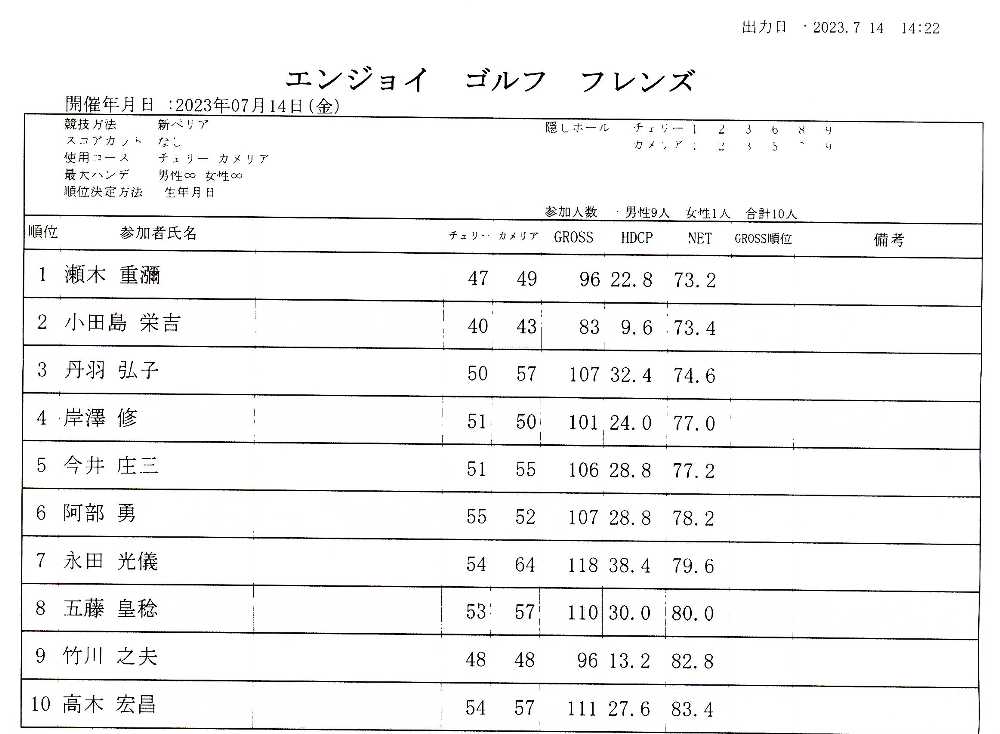 出力日 ・2023.7 14 14:22
エンジョイ ゴルフ フレンズ
開催年月日 :2023年07月14日(金)
競技方法 新ペリア 隠しホール チェリー 1 2 3 6 8 9
スコアカット なし カメリア 1 2 3 9
使用コース チェリー カメリア
最大ハンデ 男性∞ 女性∞
順位決定方法 生年月日
参加人数 ・男性9人 女性1人 合計10人
順位 参加者氏名 チェリー カメリア GROSS HDCP NET GROSS順位 備考
1 瀬木 重瀰 47 49 96 22.8 73.2
2 小田島 栄吉 40 43 83 9.6 73.4
3 丹羽 弘子 50 57 107 32.4 74.6
4 岸澤 修 51 50 101 24.0 77.0
5 今井 庄三 51 55 106 28.8 77.2
6 阿部 勇 55 52 107 28.8 78.2
7 永田 光儀 54 64 118 38.4 79.6
8 五藤 皇稔 53 57 110 30.0 80.0
9 竹川 之夫 48 48 96 13.2 82.8
10 高木 宏昌 54 57 111 27.6 83.4